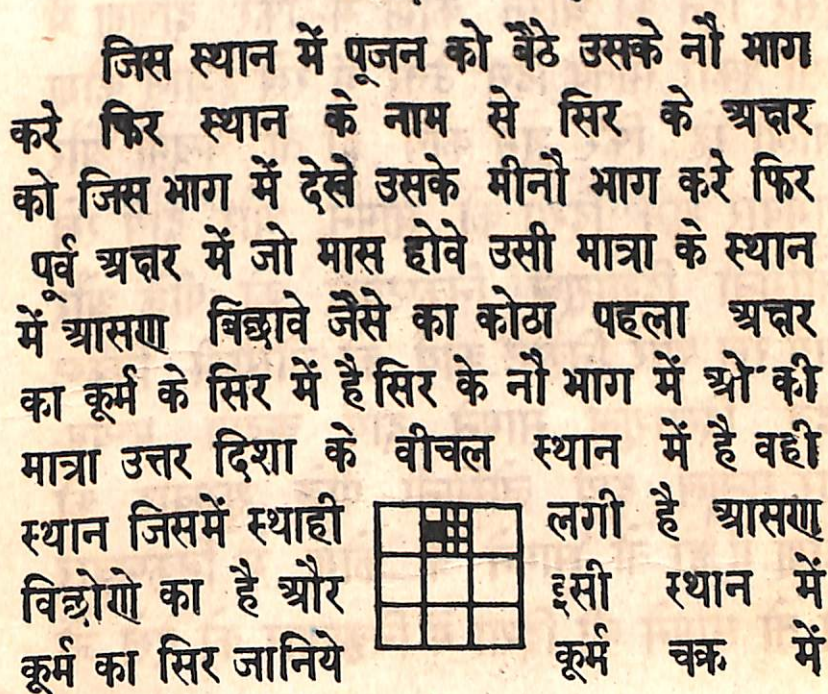 जिस स्थान में पूजन को बैठे उसके नौ भाग
करे फिर स्थान के नाम से सिर के अक्षर
को जिस भाग में देखे उसके मीनौ भाग करे फिर
पूर्व अक्षर में जो मास होवे उसी मात्रा के स्थान
में आसण बिछावे जैसे का कोठा पहला अक्षर
का कूर्म के सिर में है सिर के नौ भाग में ओ की
मात्रा उत्तर दिशा के वीचल स्थान में है वही
स्थान जिसमें स्थाही लगी है आसण
विछोणे का है और इसी स्थान में
कूर्म का सिर जानिये कूर्म चक्र में